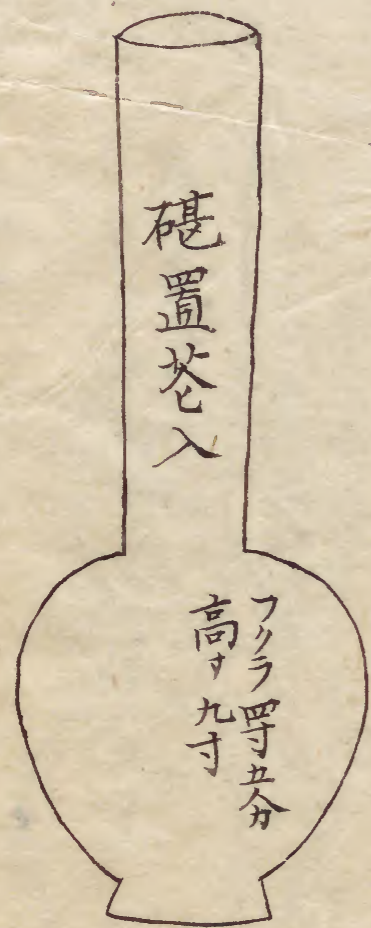 碪置花入
フクラ四寸五分
高サ九寸